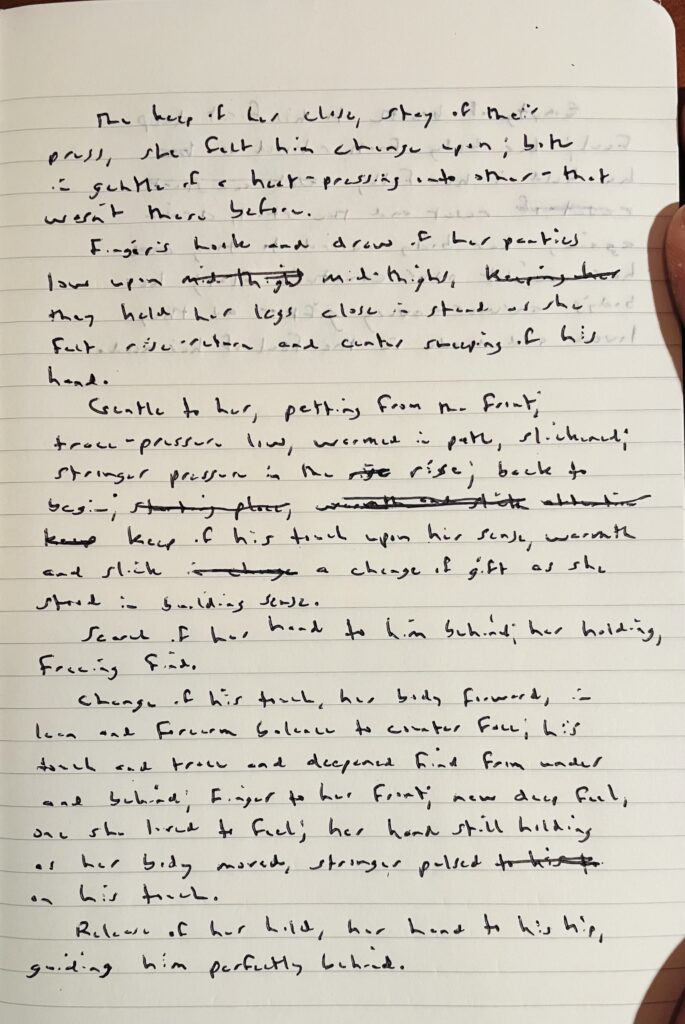 The keep of her close, stay of their
press, she felt him change upon, both
in gentle of a heat-pressing onto other-that
wasn't there before.
Fingers hook and draw of her panties
low upon mid-thigh mid-thighs, keeping her
they held her legs close in stand as she
felt rise-return and center sweeping of his
hand.
Gentle to her, petting from the front;
trace-pressure low, warmed in path, slickened;
stronger pressure in the rise rise; back to
begin; starting place, warmth and slick attention
keep keep of his touch upon her sense, warmth
and slick in change a change of gift as she
stood in building sense.
Search of her hand to him behind; her holding,
freeing find.
Change of his touch, her body forward, in
lean and forearm balance to counter face; his
touch and trace and deepened find from under
and behind; finger to her front; new deep feel,
one she lived to feel; her hand still holding
as her body moved, stronger pulsed to his
on his touch.
Release of her hold, her hand to his hip,
guiding him perfectly behind.